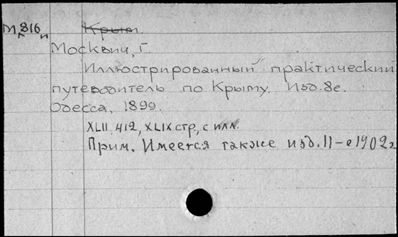 М 816 и
Крым
Москвич, Г.
Иллюстрированный практический
путеводитель по Крыму. Изд. 8е.
Одесса, 1899.
XLII. 412, XLIX стр, с илл.
Прим. Имеется также изд. 11-е 1902г